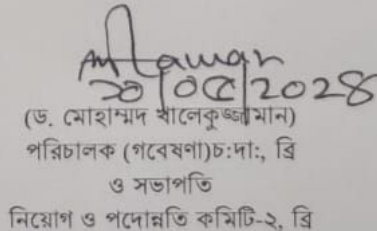 ২০/০৫/2028
(ড. মোহাম্মদ খালেকুজ্জামান)
পরিচালক (গবেষণা)চ:দা:, ব্রি
ও সভাপতি
নিয়োগ ও পদোন্নতি কমিটি-২, ব্রি